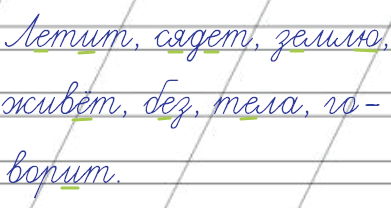 Летит, сядет, землю,
живёт, без, тела, го-
ворит.